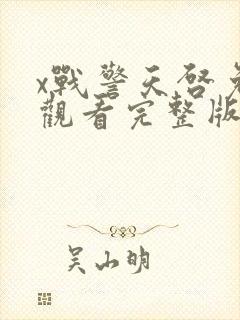 x戰警天啓免
觀看完整版
吴山明